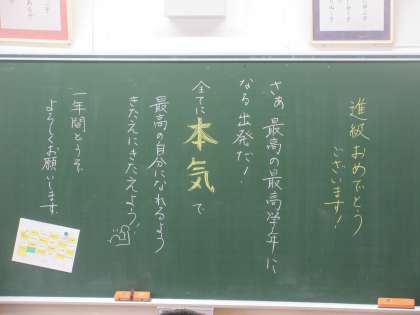 進級おめでとう
ございます!
さぁ 最高の最高学年に
なる出発だ!
全てに本気で
最高の自分になれるよう
きたえにきたえよう!
一年間どうぞ
よろしくお願いします。